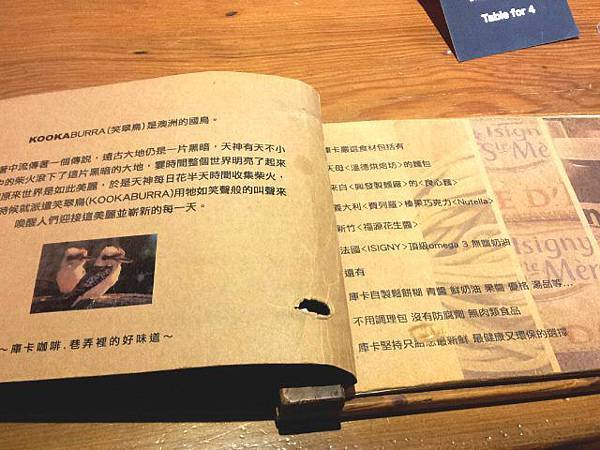 Table for 4
KOOKABURRA(笑翠鳥)是澳洲的國鳥。
著中流傳著一個傳說，遠古大地仍是一片黑暗，天神有天不小
中的柴火滾下了這片黑暗的大地，霎時間整個世界明亮了起來
原來世界是如此美麗，於是天神每日花半天時間收集柴火，
時候就派遣笑翠鳥(KOOKABURRA)用牠如笑聲般的叫聲來
喚醒人們迎接這美麗並嶄新的每一天。
～庫卡咖啡.巷弄裡的好味道～
庫卡嚴選食材包括有
天母<溫德烘焙坊>的麵包
來自<興發製麵廠>的<良心麵>
義大利<費列羅>榛果巧克力<Nutella>
新竹<福源花生醬>
法國<ISIGNY>頂級omega 3 無鹽奶油
還有
庫卡自製鬆餅糊 青醬 鮮奶油 果醬 優格 湯品等...
不用調理包 沒有防腐劑 無肉類食品
庫卡堅持只給您最新鮮 最健康又環保的選擇
Isigny
Ste Mère
Isigny
Ste Mère